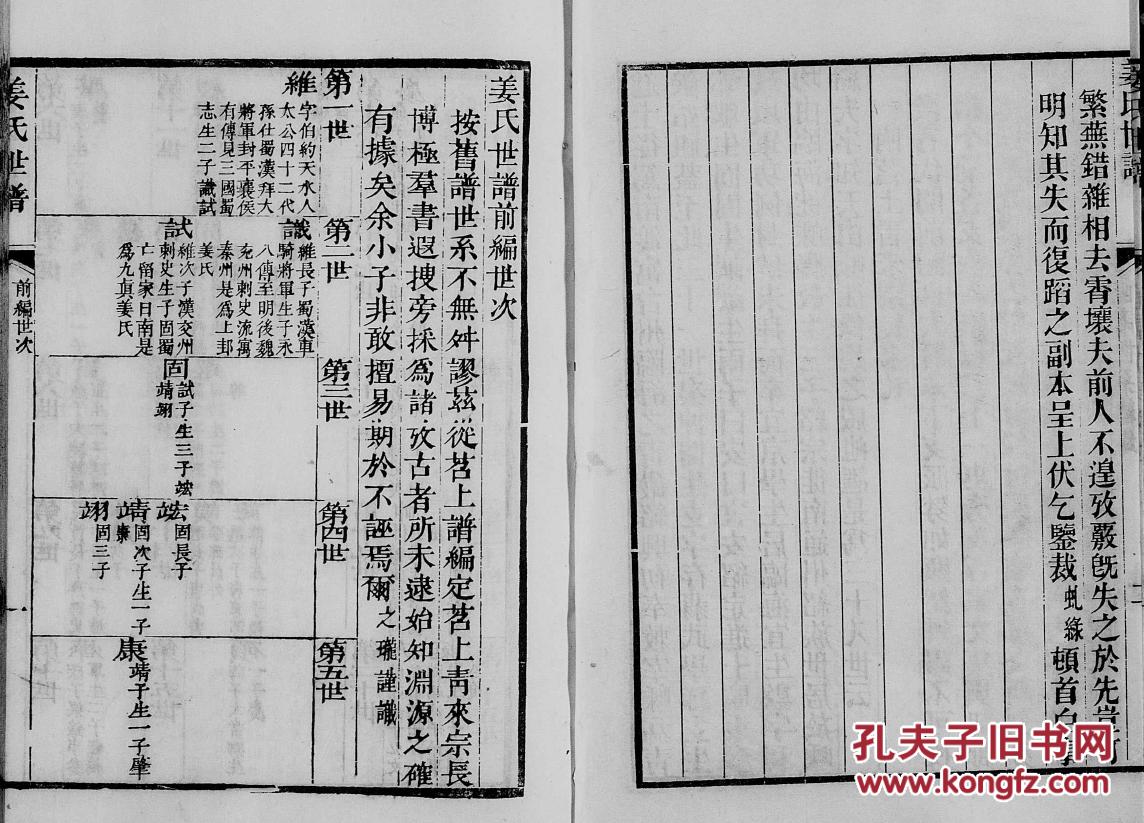 姜氏世譜
繁蕪錯雜相去霄壤夫前人不遑攷覈旣失之於先豈
明知其失而復蹈之副本呈上伏乞鑒裁虬綠頓首白
姜氏世譜前編世次
按舊譜世系不無舛謬茲從茗上譜編定茗上靑來宗長
博極羣書遐搜旁採爲諸攷古者所未逮始知淵源之確
有據矣余小子非敢擅易期於不誣焉爾之瓏謹識
第一世
維字伯約天水人
太公四十二代
孫仕蜀漢拜大
將軍封平襄侯
有傳見三國蜀
志生二子識試
第二世
識維長子蜀漢車
騎將軍生子永
八傳至明後魏
兗州刺史流寓
秦州是爲上邽
姜氏
試維次子漢交州
刺史生子固蜀
亡留家日南是
爲九眞姜氏
第三世
固試子生三子竑
靖翊
第四世
竑固長子
靖固次子生一子
康
翊固三子
第五世
康靖子生一子肇
姜氏世譜
前編世次
一
孔夫子旧书网
www.kongfz.com